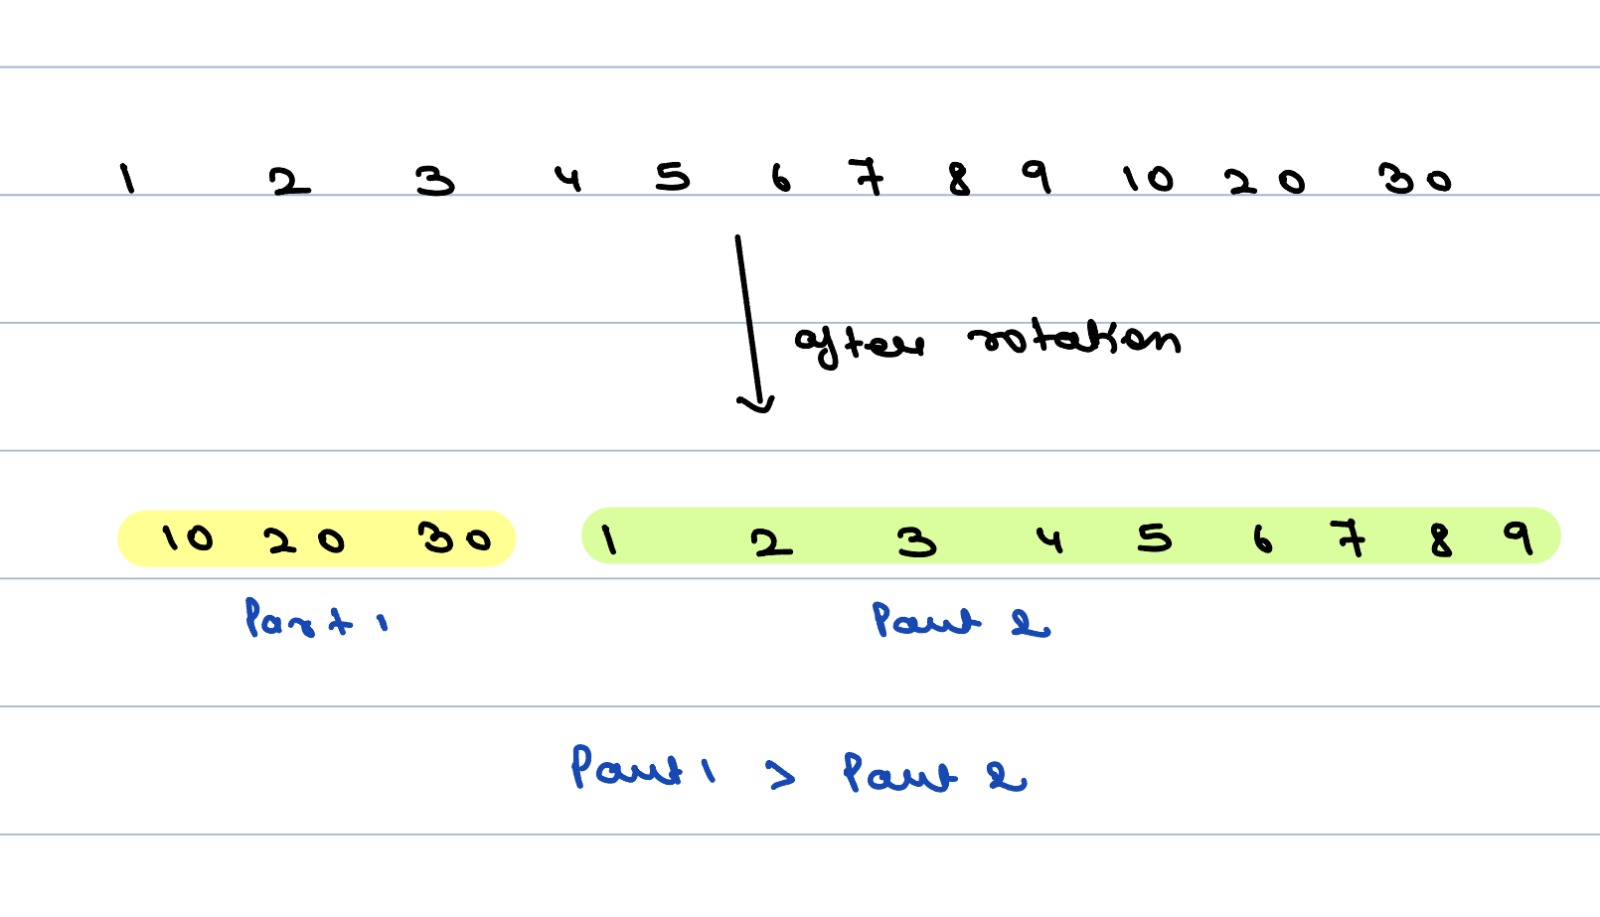 1 2 3 4 5 6 7 8 9 10 20 30
after rotation
10 20 30 1 2 3 4 5 6 7 8 9
Part 1 Part 2
Part 1 > Part 2